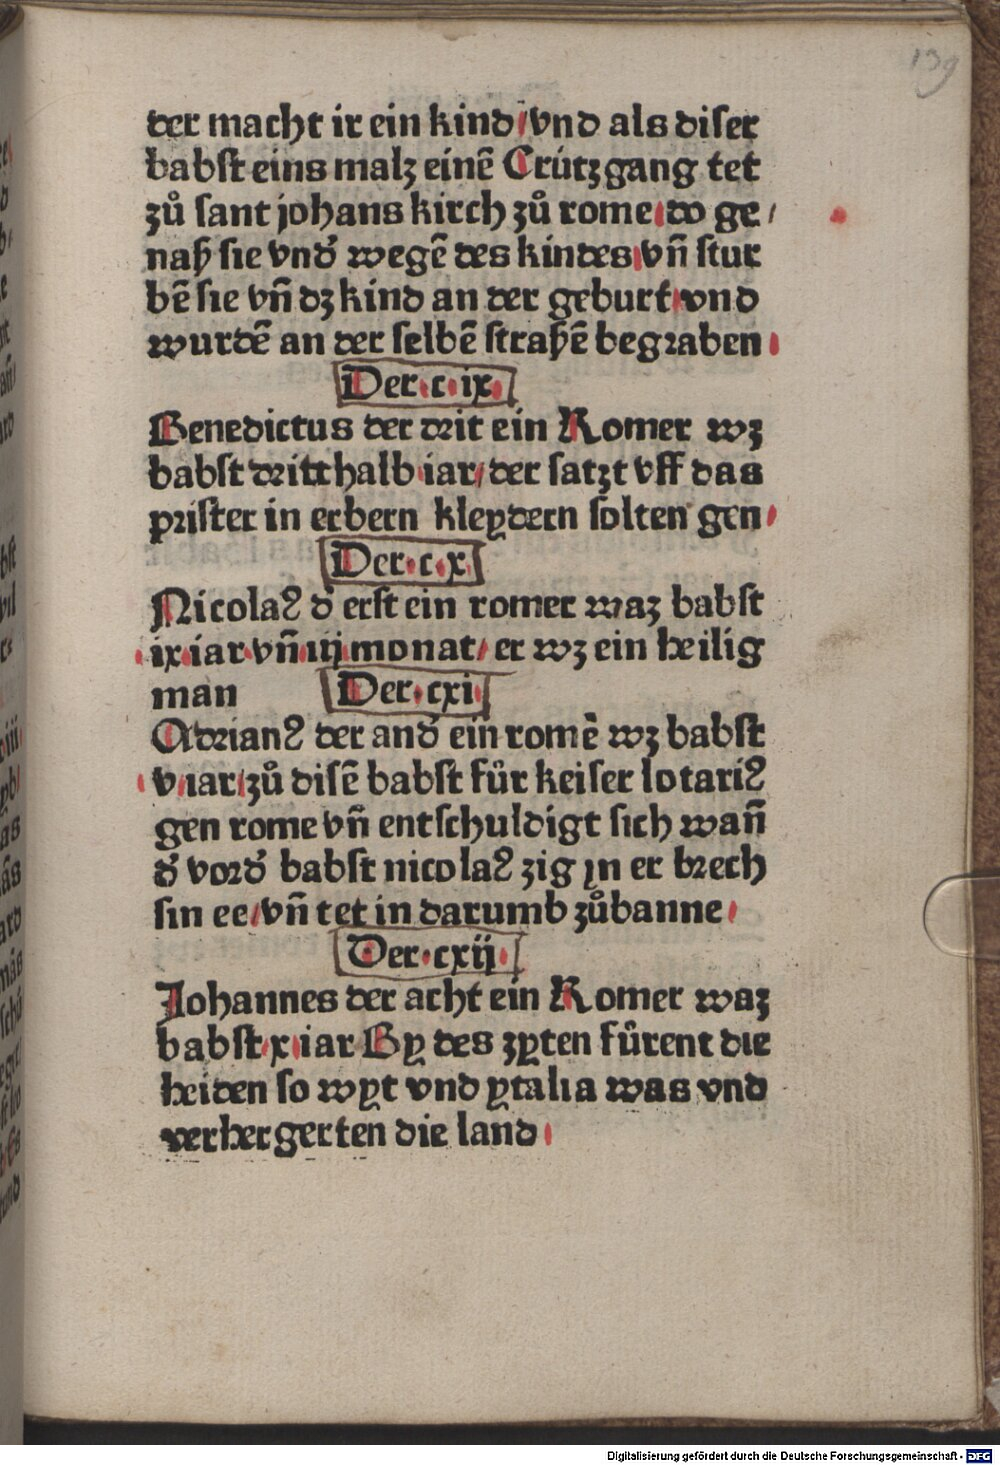 139
der macht ir ein kind/ vnd als diser
babst eins malz einē Crútzgang tet
zů sant johans kirch zů rome/ do ge/
naß sie vnď wegē des kindes/ vñ stur
bē sie vñ dz kind an der geburt/ vnd
wurdē an der selbē straßē begraben
Der·c·ix·
Benedictus der drit ein Romer wz
babst dritthalb iar/ der satzt vff das
prister in erbern kleydern solten gen
Der·c·x·
Nicolaꝰ ď erst ein romer waz babst
·ix·iar vñ·iij·monat/ er wz ein heilig
man
Der·cxi·
Adrianꝰ der anď ein romē wz babst
·v·iar/ zů disē babst fůr keiser lotariꝰ
gen rome vñ entschuldigt sich wañ
ď vorď babst nicolaꝰ zig yn er brech
sin ee/ vñ tet in darumb zůbanne
Der·cxij·
Johannes der acht ein Romer waz
babst·x·iar By des zyten fůrent die
heiden so wyt vnd ytalia was vnd
verhergerten die land
Digitalisierung gefördert durch die Deutsche Forschungsgemeinschaft - DFG